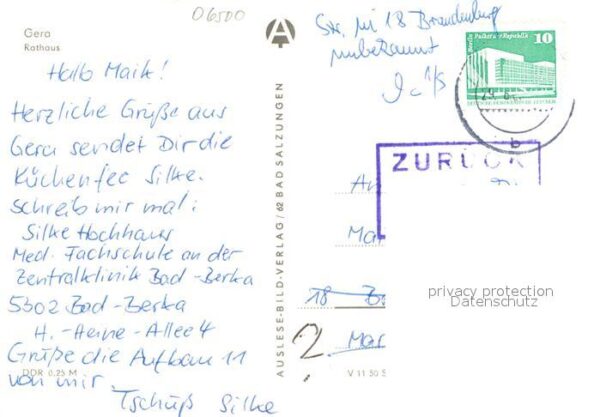 06500
Gera
Rathaus
Hallo Maik!
Herzliche Grüße aus
Gera sendet Dir die
Küchenfee Silke.
Schreib mir mal:
Silke Hochhaus
Med. Fachschule an der
Zentralklinik Bad-Berka
5302 Bad-Berka
H.-Heine-Allee 4
Grüße die Aufbau 11
von mir.
Tschüß Silke
DDR 0,25 M
AUSLESE-BILD-VERLAG / 62 BAD SALZUNGEN
A
Str. in 18 Brandenburg
unbekannt
Berlin Palast der Republik
10
DEUTSCHE DEMOKRATISCHE REPUBLIK
29.6.
b
ZURÜCK
An
Ma
18 B
Mar
V 11 50
privacy protection
Datenschutz